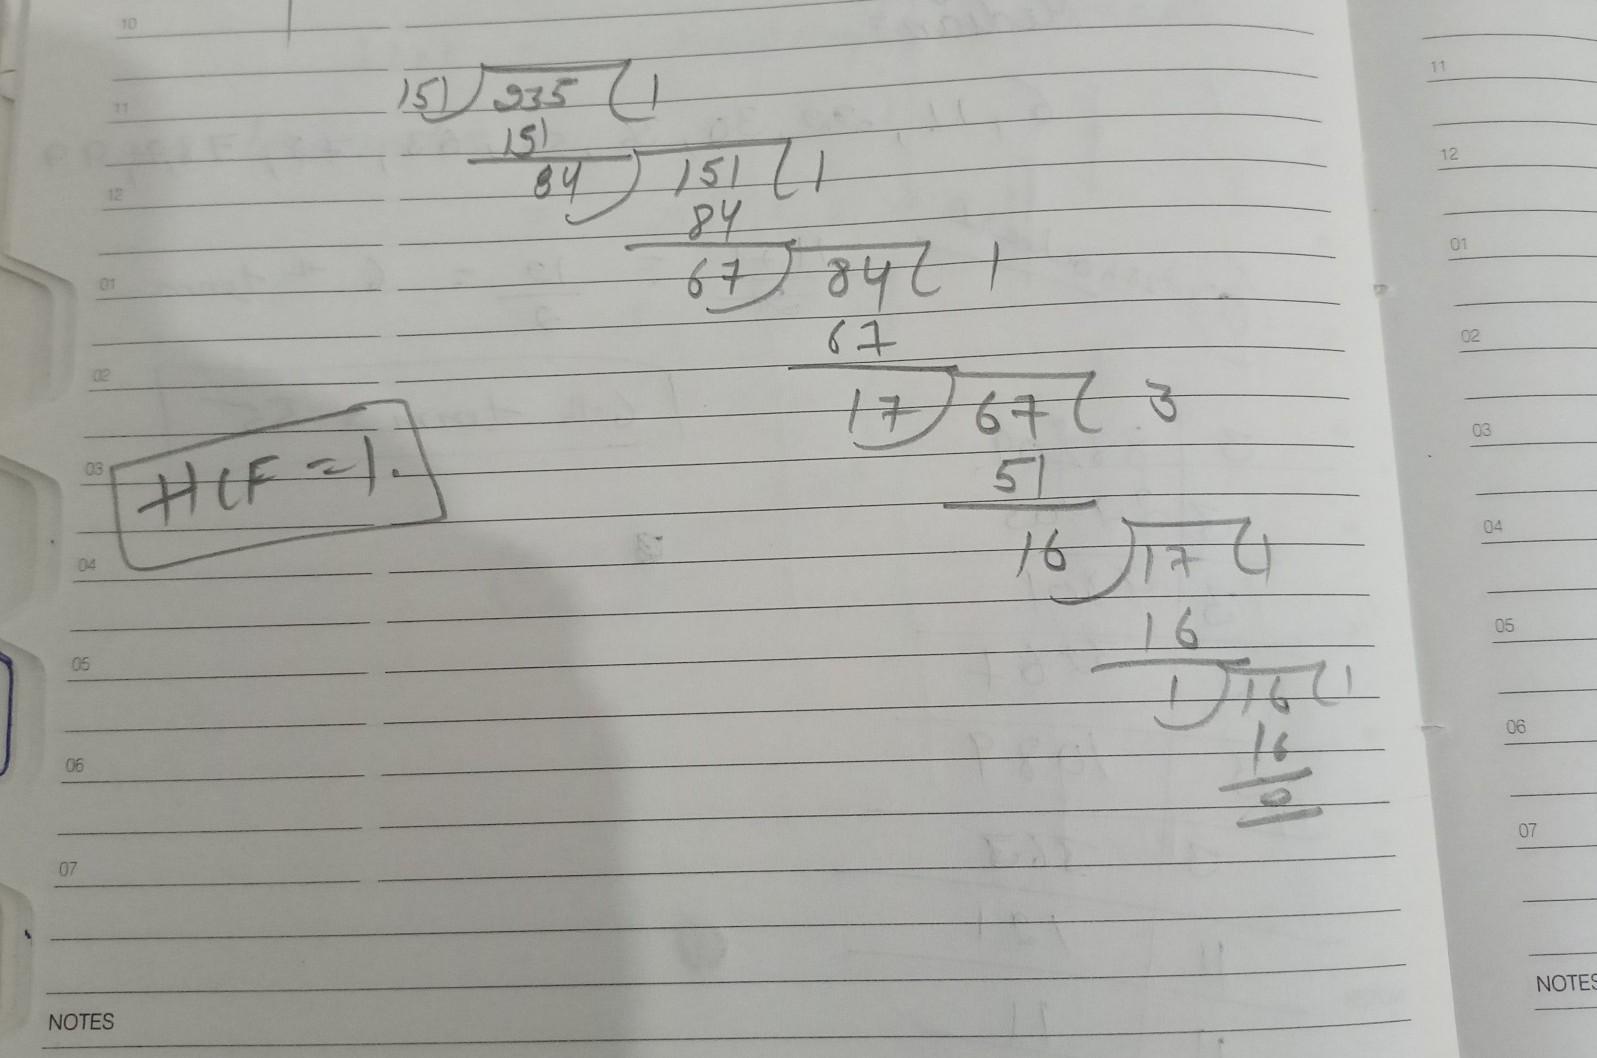 10
151) 235 ( 1
11
151
84) 151 ( 1
12
84
67) 84 ( 1
01
67
02
17) 67 ( 3
HCF = 1.
03
51
16) 17 ( 1
04
16
05
1) 16 ( 1
16
06
0
07
NOTES
11
12
01
02
03
04
05
06
07
NOTES